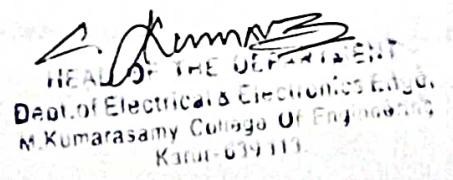 C. Kumar
HEAD OF THE DEPARTMENT
Dept. of Electrical & Electronics Engg.
M.Kumarasamy College Of Engineering
Karur-639 113.